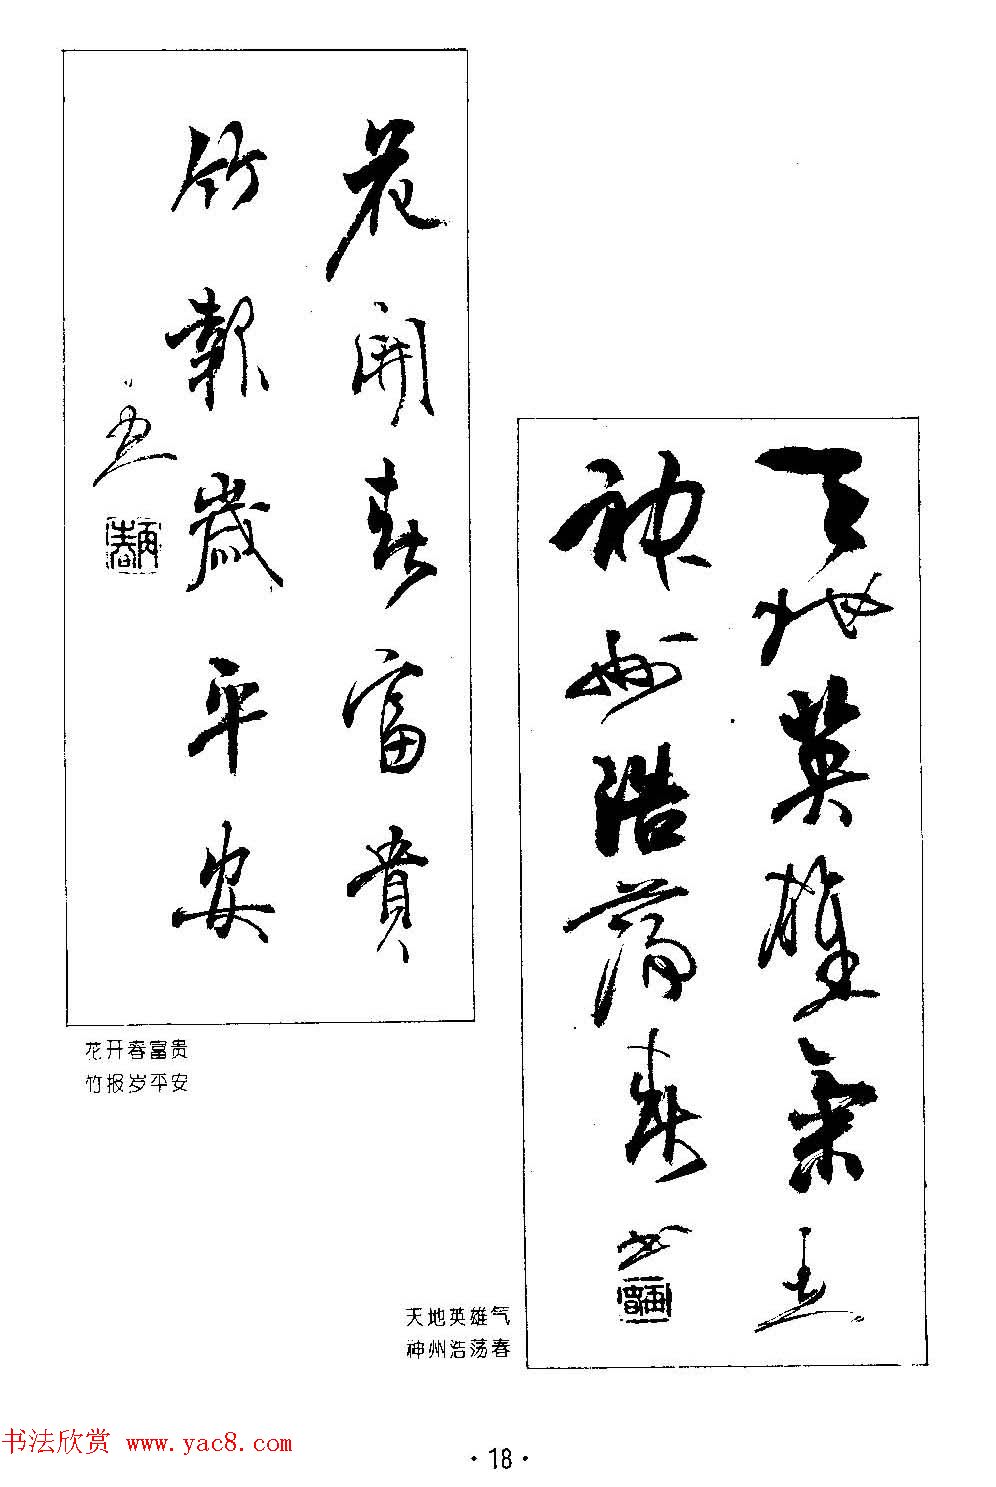 花開春富貴
竹報歲平安
花开春富贵
竹报岁平安
天地英雄氣
神州浩蕩春
书
天地英雄气
神州浩荡春
书法欣赏 www.yac8.com
·18·